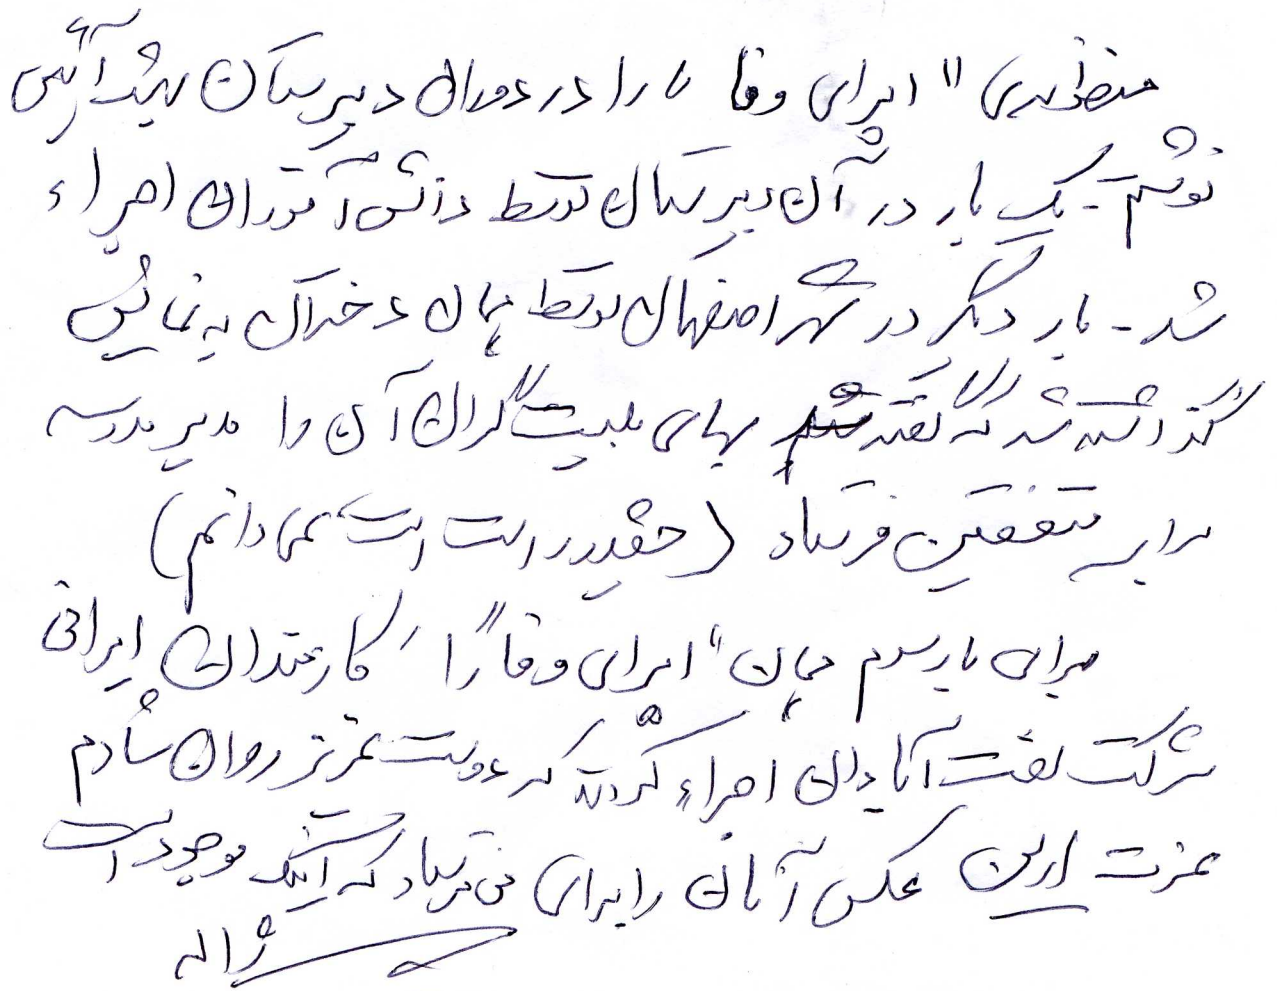 منظومه‌ی "اپرای وفا" را در دوران دبیرستان بهشت آئین
نوشتم - یک بار در آن دبیرستان توسط دانش آموزان اجراء
شد - بار دیگر در شهر اصفهان توسط همان دختران به نمایش
گذاشته شد که گفته شد بهای بلیت گران آن را مدیر مدرسه
برای متفقین فرستاد (چقدر راست است نمی دانم)
برای بار سوم همان "اپرای وفا" را کارمندان ایرانی
شرکت نفت آبادان اجراء کردند که دوست عزیز روان شادم
عزت عکس آنان را برای من فرستاد که اینک موجود است
ژاله